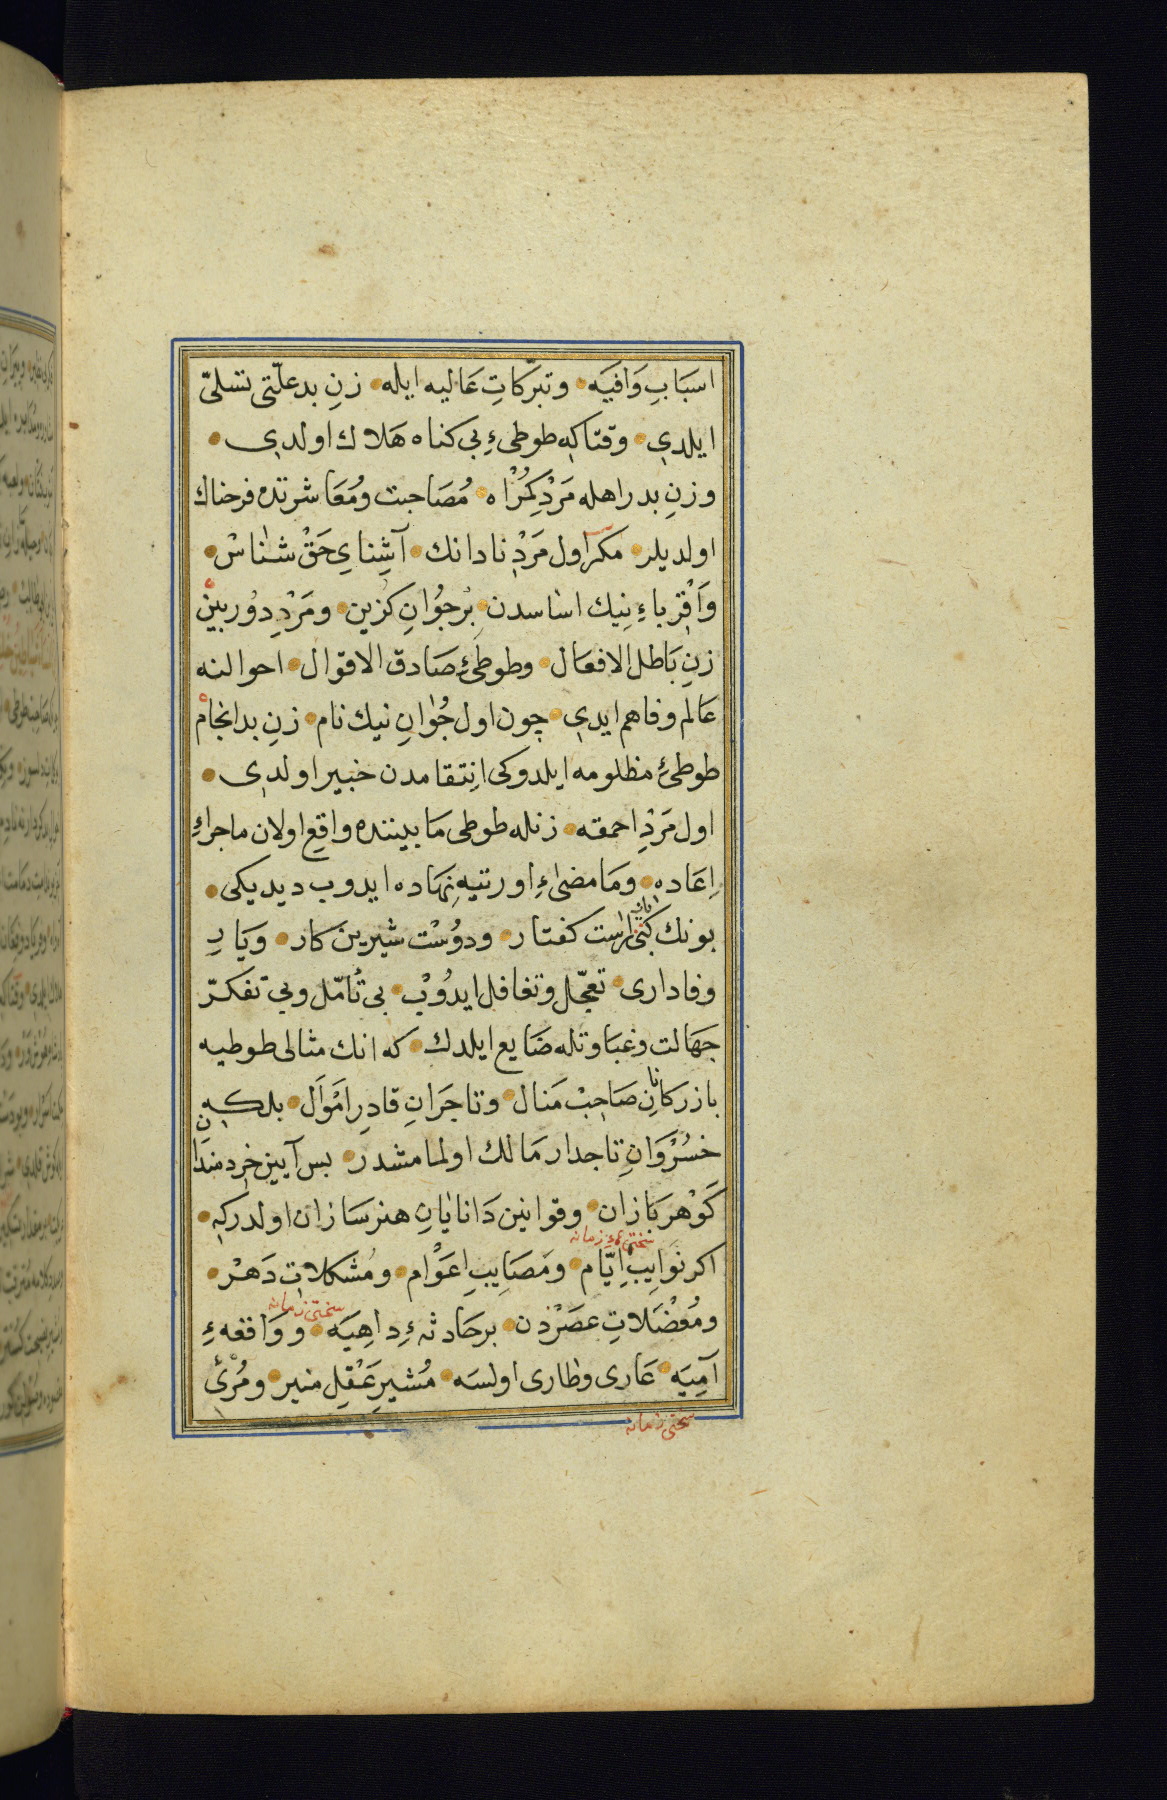 اسبَابِ وَافيَه وتبرّكاتِ عَاليه ايله زنِ بدعلّتی تسلیّ
ايلدی وقتاكه طوطیءِ بی كناه هَلاك اولدی
وزنِ بدراهله مَرْدِ كُمْرَاه مُصَاحبت ومُعَاشرتده فرحناك
اولديلر مكر اول مَرْدِ نادانك آشِنایِ حَقْ شناسْ
وَاقْرِباءِ نِيك اساسدن بُر جُوَانِ كزين ومَرْدِ دُوربينْ
زنِ بَاطل الافعَال وطوطیٔ صَادق الاقوال احوالنه
عَالم وفاهم ايدی چون اول جُوَانِ نيك نام زنِ بدانجامْ
طوطیٔ مظلومه ايلدوكی انِتقامدن خبير اولدی
اول مَرْدِ احمقه زنله طوطی مَابيننده واقع اولان ماجراءِ
اِعَاده ومَا مضىٰءِ اورتيه نِهَاده ايدوب ديديكی
بونك كبی راست كفتار ودوُسْت شيرين كار ويَارِ
وفاداری تعجّل وتغافل ايدُوْب بی تأمّل وبی تفكّر
جهَالت وغبَاوتله ضَايع ايلدك كه انك مثالی طوطيه
بازركانانِ صَاحِبْ مَنال وتاجَرانِ قادرِ امَوَال بلكه
خسُرْوَانِ تاجدار مَالك اولمامشدر بس آيينِ خردمندان
كَوْهر بَازان وقوانينِ دَانايَانِ هنرسَازان اولدركه
اكر نَوايبِ ايّام ومَصَايبِ اعَوْام ومُشكلاتِ دَهْر
سختیءِ زمانه
ومُعْضَلاتِ عصَرْدن برحَادثهءِ داهِيَه ووَاقعهءِ
سختی زمانه
آمِيَه عَاری وطاری اولسَه مُشيرِ عَقْلِ منير ومُرْئ
سختی زمانه